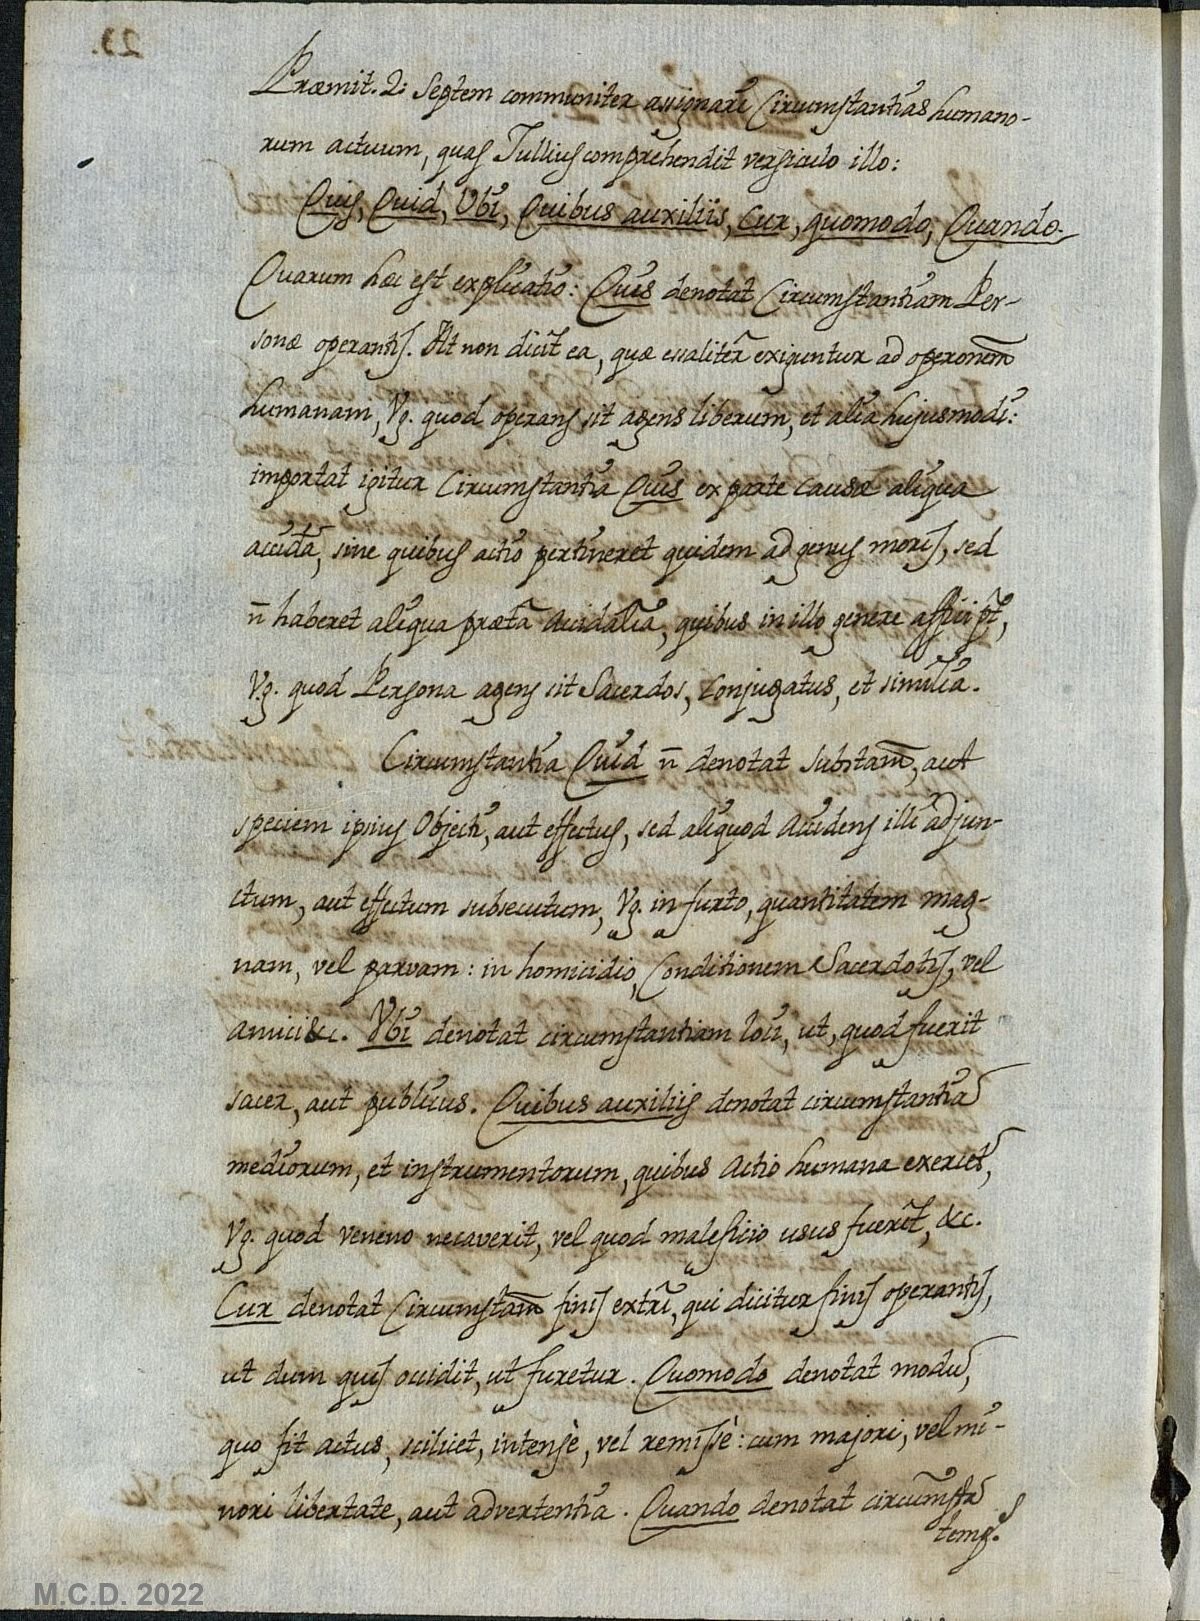 23.
Præmit. 2: Septem communiter assignari Circumstantias humano-
rum actuum, quas Tullius comprehendit versiculo illo:
Quis, Quid, Ubi, Quibus auxiliis, Cur, quomodo, Quando.
Quarum hæc est explicatio: Quis denotat Circumstantiam Per-
sonæ operantis. At non dicit ea, quæ exiguntur ad
humanam, Vg. quod operans sit agens liberum, et alia hujusmodi:
importat igitur Circumstantia Quis ex parte causæ aliqua
sine quibus actio pertineret quidem ad genus moris, sed
n̄ haberet aliqua quibus in illo genere affici pt̄,
Vg. quod Persona agens sit Sacerdos, Conjugatus, et similia.
Circumstantia Quid n̄ denotat substam̄, aut
speciem ipsius Objecti, aut effectus, sed aliquod Accidens illi adjun-
ctum, aut effectum subsecutum, Vg. in furto, quantitatem mag-
nam, vel parvam: in homicidio, Conditionem Sacerdotis, vel
amici &c. Ubi denotat circumstantiam loci, ut, quod fuerit
sacer, aut publicus. Quibus auxiliis denotat circumstantiā
mediorum, et instrumentorum, quibus Actio humana exercet̄,
Vg. quod veneno necaverit, vel quod maleficio usus fuerit, &c.
Cur denotat Circumstam̄ finis extri, qui dicitur finis operantis,
ut dum quis occidit, ut furetur. Quomodo denotat modū,
quo fit actus, scilicet, intensè, vel remissè: cum majori, vel mi-
nori libertate, aut advertentia. Quando denotat circumstā
temp.s
M.C.D. 2022